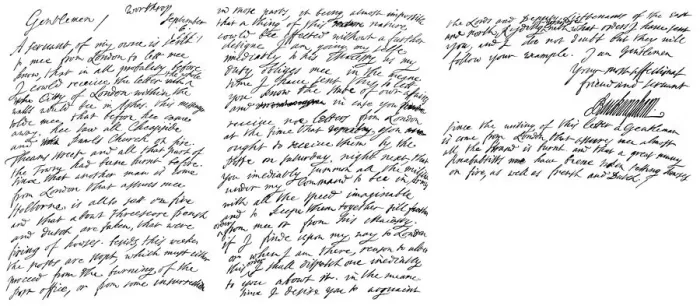 Gentlemen/ Worthrop
September
6
A servant of my owne is sent
to mee from London to let mee
know, that in all probability before
I could receive the letter the whole
City of London within the
walls would be in Ashes. this messenger
tolde mee, that before hee came
away, hee saw all Cheapside
and Pauls Church on fire.
Thames street and all that part of
the Towne had bene burnt before.
since that another man is come
from London that assures mee
Holborne is allso set on fire
and that about threescore french
and dutch are taken, that were
firing of houses. besides this
the posts are stopt, which must either
proceed from the burning of the
Post office, or from some insurrection
in those parts, it being almost impossible
that a thing of this nature
could bee effected without a further
designe. I am going my selfe
imediately to his as my
duty obliges mee, in the meane
time I have sent this to let
you know the state of our affairs
and in case you
receive no letters from London
at the time that you
ought to receive them by the
Post on saturday night next that
you imediately summon all the militia
under my Command to bee in arms
with all the speed imaginable
and to keepe them together till further
from mee or from his
if I finde upon my way to London
or when I am there, reason to alter
this I shall dispatch one imediately
to you about it. in the meane
time I desire you to acquaint
the Lords and of the east
and north what orders I have sent
you, and I doe not doubt that they will
follow your example. I am Gentlemen
Your most affectionat
friend and servant
Buckingham
since the writing of this letter a Gentleman
is come from London that almost
all the Strand is burnt, and that a great many
Anabaptists have beene taken setting houses
on fire, as well as french and dutch/